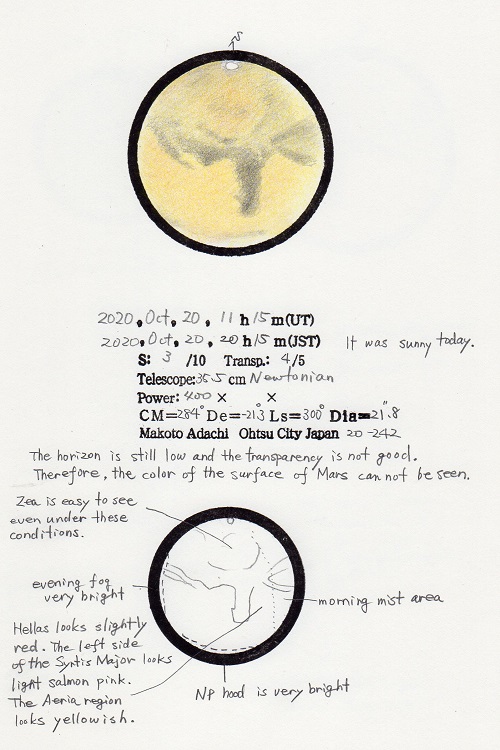 S
2020, Oct, 20, 11 h 15 m(UT)
2020, Oct, 20, 20 h 15 m(JST)
It was sunny today.
S: 3 /10 Transp.: 4/5
Telescope: 35.5 cm Newtonian
Power: 400 × ×
CM=284° De=-21.3° Ls=300° Dia=21".8
Makoto Adachi Ohtsu City Japan 20-242
The horizon is still low and the transparency is not good.
Therefore, the color of the surface of Mars can not be seen.
Zea is easy to see
even under these
conditions.
evening fog
very bright
morning mist area
Hellas looks slightly
red. The left side
of the Syrtis Major looks
light salmon pink.
The Aeria region
looks yellowish.
NP hood is very bright